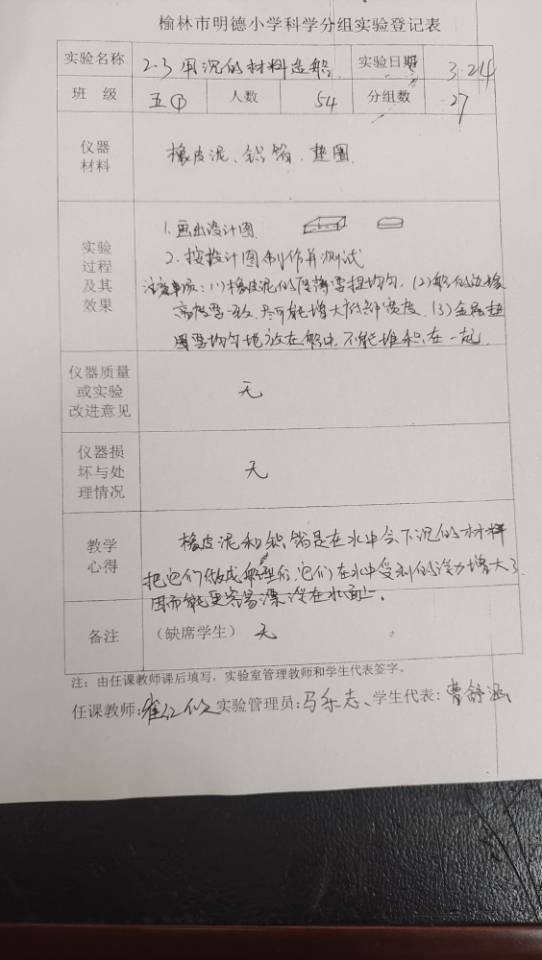 榆林市明德小学科学分组实验登记表
实验名称 2-3 用沉的材料造船 实验日期 3.24
班 级 五① 人数 54 分组数 27
仪器
材料
橡皮泥、铝箔、垫圈
实验
过程
及其
效果
1.画出设计图
2.按设计图制作并测试
注意事项:(1)橡皮泥的厚薄要捏均匀,(2)船的边缘
高度要一致,尽可能增大底部宽度,(3)金属垫
圈要均匀地放在船中,不能堆积在一起
仪器质量
或实验
改进意见
无
仪器损
坏与处
理情况
无
教学
心得
橡皮泥和铝箔是在水中会下沉的材料
把它们做成船型后,它们在水中受到的浮力增大了
因而能更容易漂浮在水面上。
备注 (缺席学生) 无
注:由任课教师课后填写,实验室管理教师和学生代表签字。
任课教师: 实验管理员:马乐志、学生代表:曹舒涵